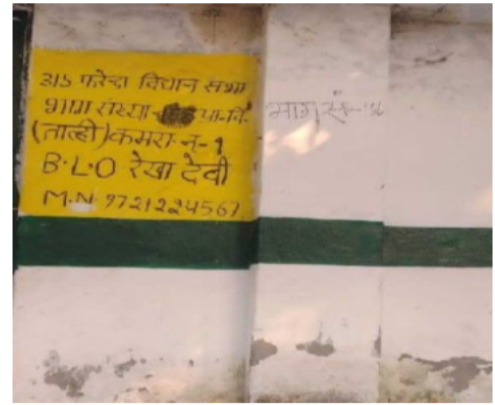 315 फरेन्दा विधान सभा
भाग संख्या प्रा.वि.
(ताल्ही) कमरा न.-1
B.L.O रेखा देवी
M.N. 9721224567
भाग सं.-